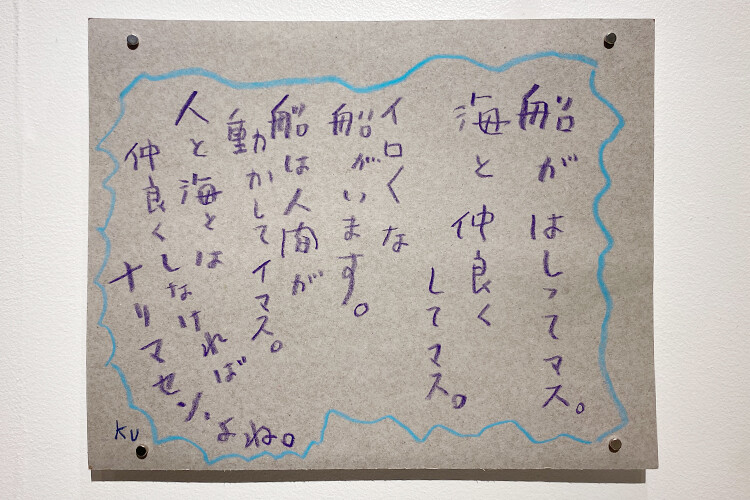 船がはしってマス。
海と仲良く
してマス。
イロくな
船がいます。
船は人間が
動かしてイマス。
人と海とは
仲良くしなければ
ナリマセン、よね。
KU